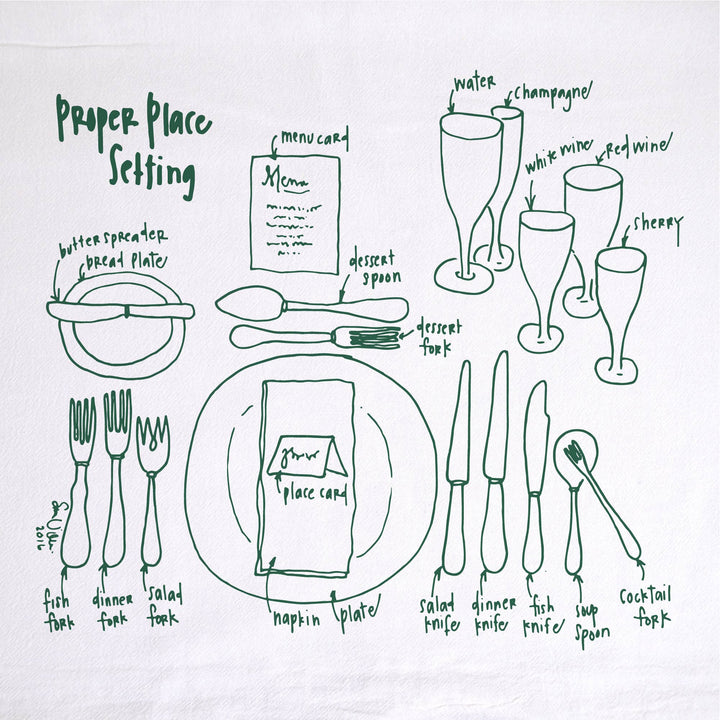 Proper Place
Setting
menu card
Menu
butter spreader
bread plate
dessert
spoon
dessert
fork
water
champagne
white wine
red wine
sherry
place card
2016
fish
fork
dinner
fork
salad
fork
napkin
plate
salad
knife
dinner
knife
fish
knife
soup
spoon
cocktail
fork